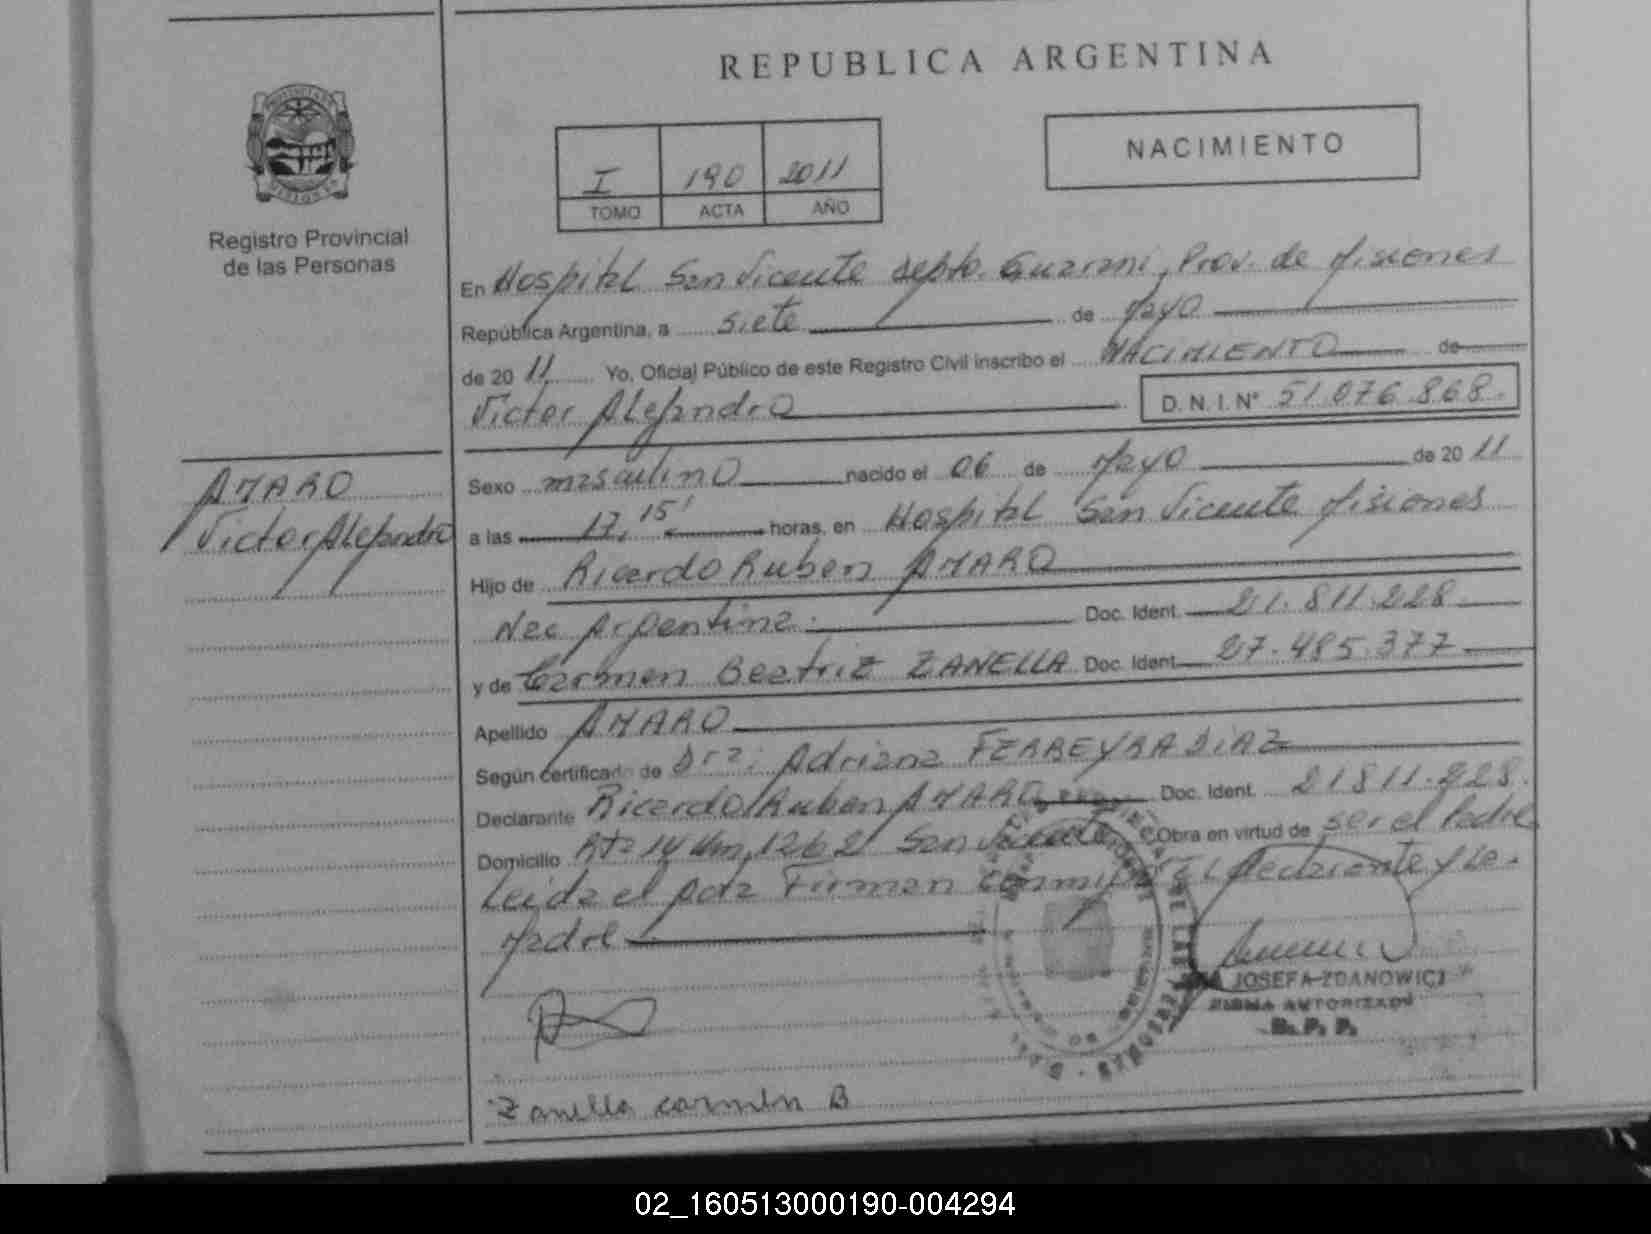 REPUBLICA ARGENTINA
NACIMIENTO
I 190 2011
TOMO ACTA AÑO
Registro Provincial
de las Personas
En Hospital San Vicente depto. Guarani, Prov. de Misiones
República Argentina, a siete de Mayo
de 20 11 Yo, Oficial Público de este Registro Civil inscribo el NACIMIENTO de
Victor Alejandro D. N. I. N° 51.076.868.
AMARO
Victor Alejandro
Sexo masculino nacido el 06 de Mayo de 20 11
a las 17,15' horas, en Hospital San Vicente Misiones
Hijo de Ricardo Ruben AMARO
Nac Argentina. Doc. Ident. 21.811.228
y de Carmen Beatriz ZANELLA Doc. Ident. 27.485.377
Apellido AMARO
Según certificado de Dra: Adriana FERREYRA DIAZ
Declarante Ricardo Ruben AMARO Doc. Ident. 21811.228.
Domicilio Rta 14 Km, San Vicente Obra en virtud de ser el Padre
Leida el acta Firman conmigo El declarante y La
Madre
JOSEFA ZDANOWICZ
FIRMA AUTORIZADA
R. P. P.
Zanella carmen B
02_160513000190-004294